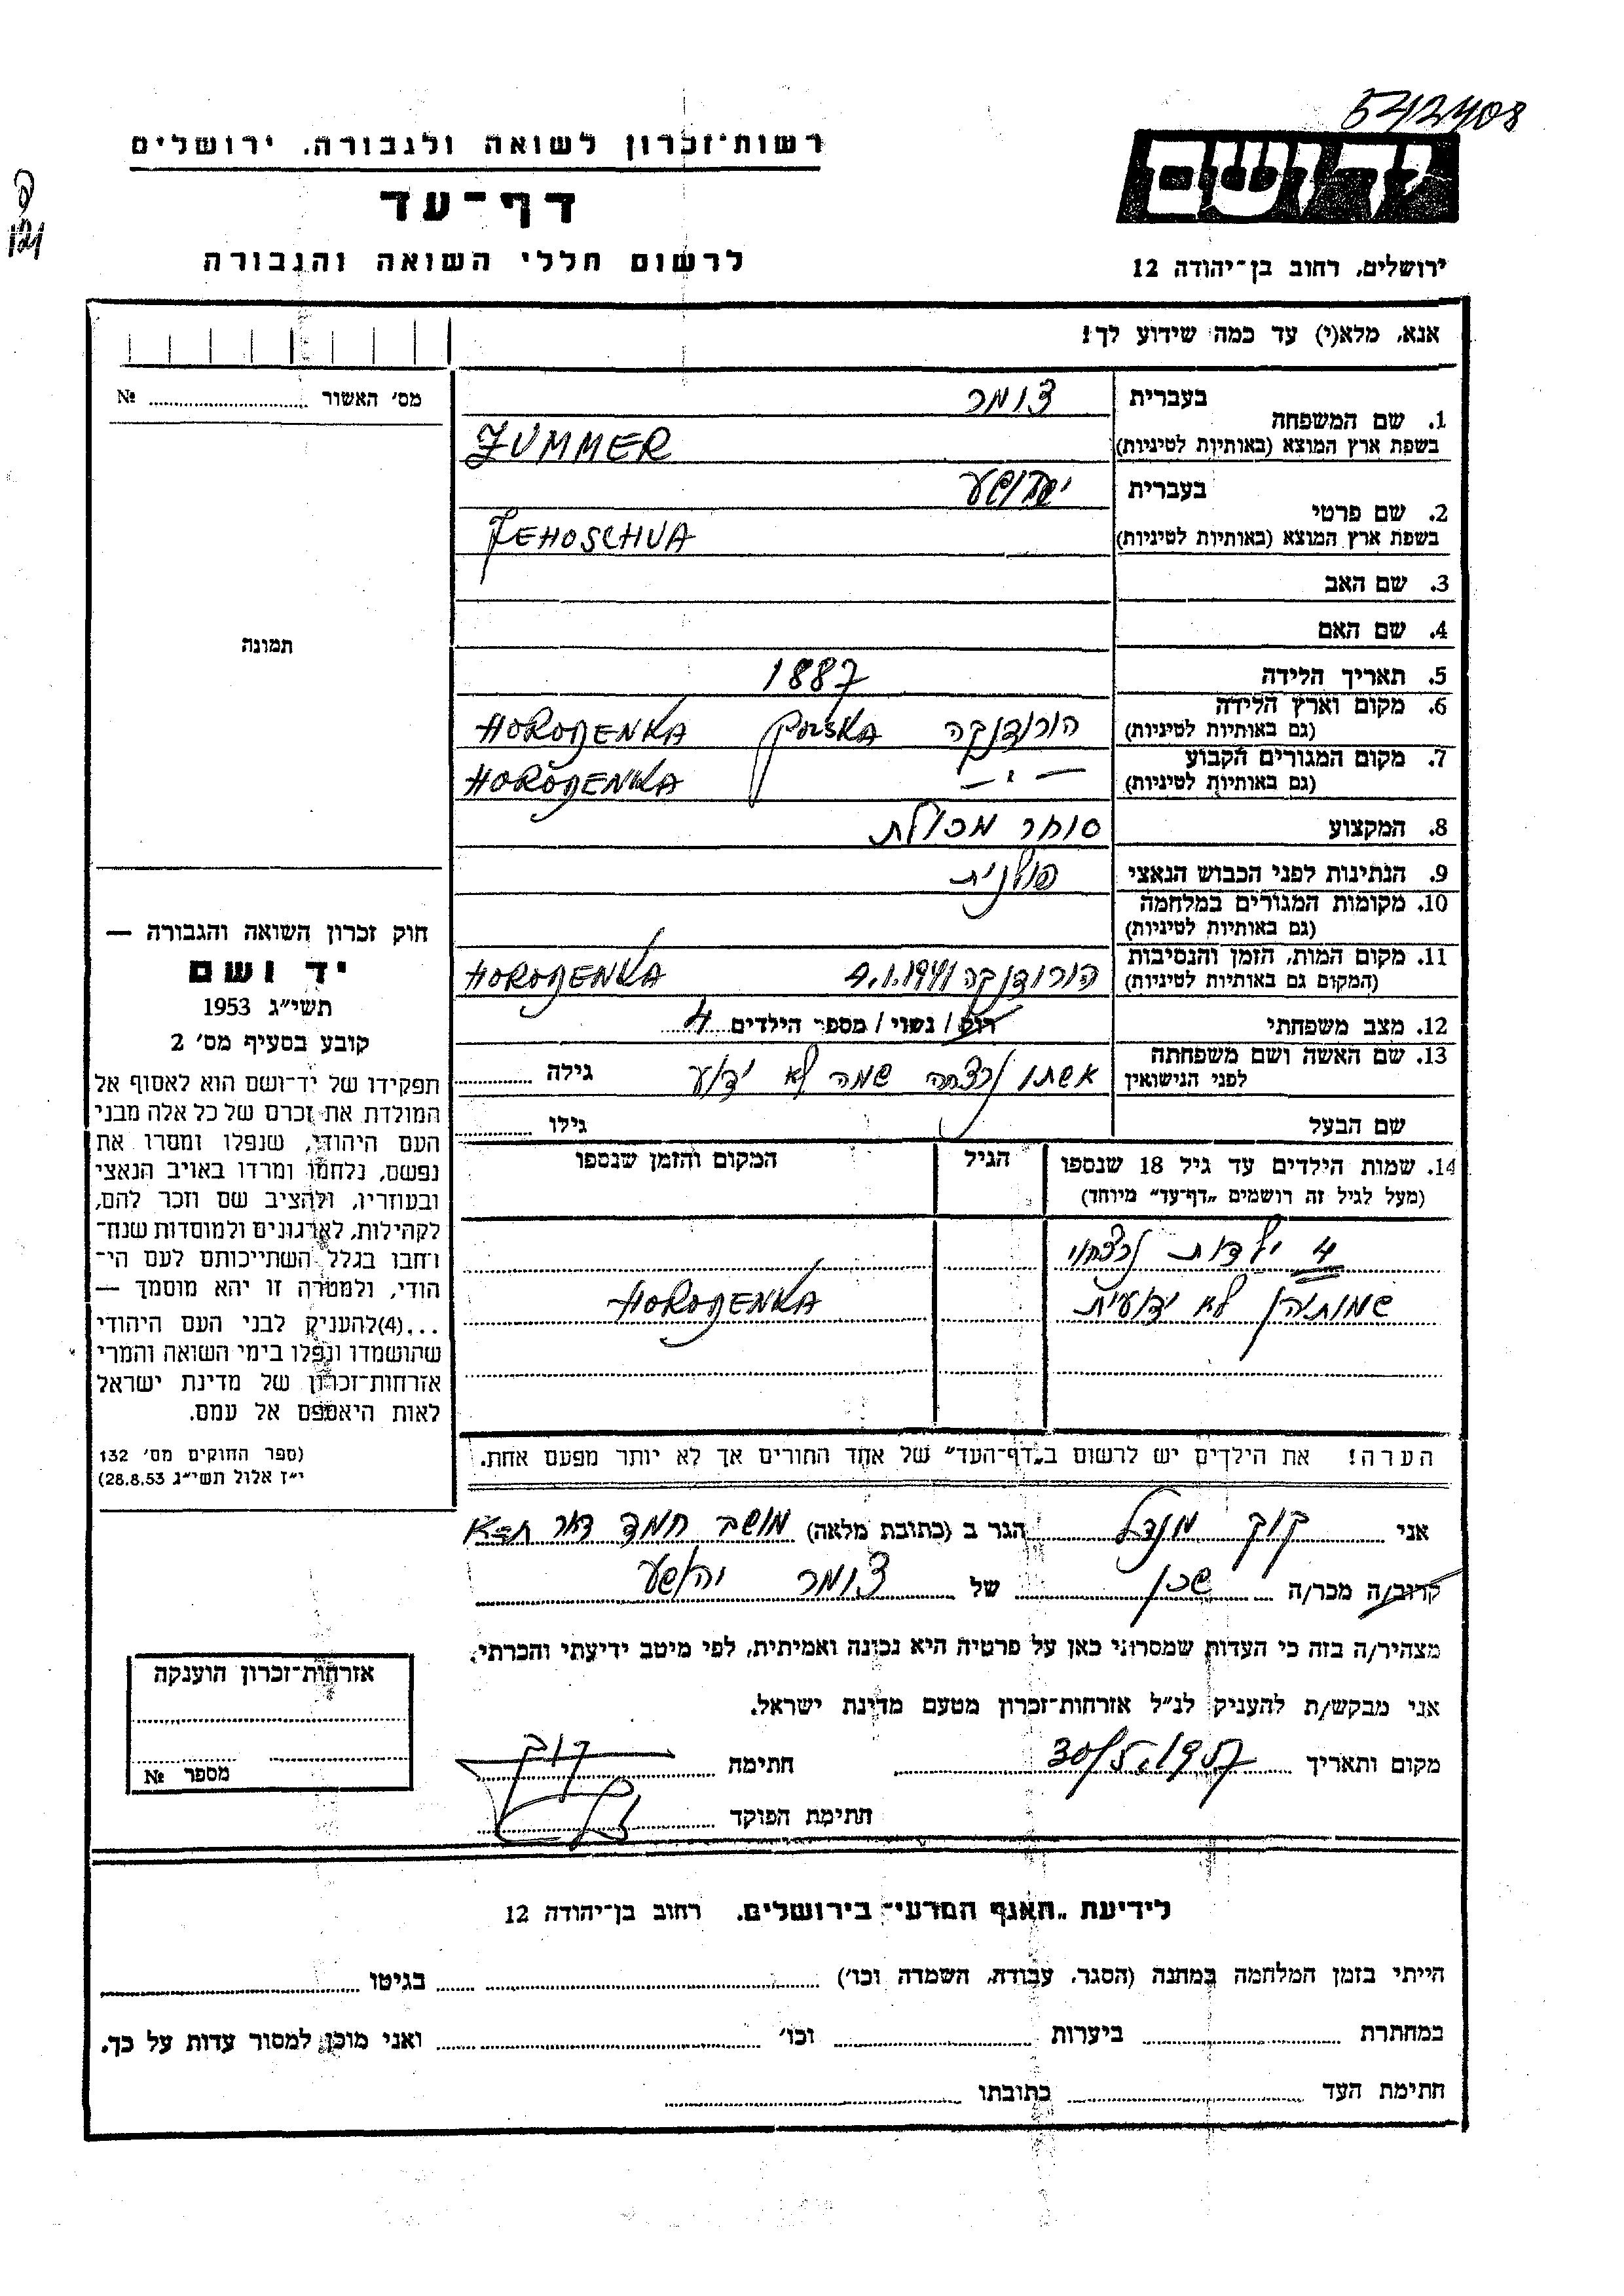 542408
רשות־זכרון לשואה ולגבורה. ירושלים
דף־עד
לרשום חללי השואה והגבורה
ידושם
ירושלים, רחוב בן־יהודה 12
אנא, מלא(י) עד כמה שידוע לך!
מס' האשור № 
1. שם המשפחה
בעברית צומר
בשפת ארץ המוצא (באותיות לטיניות) ZUMMER
2. שם פרטי
בעברית יהושע
בשפת ארץ המוצא (באותיות לטיניות) JEHOSCHUA
3. שם האב
4. שם האם
תמונה
5. תאריך הלידה 1887
6. מקום וארץ הלידה
(גם באותיות לטיניות) הורודנקה POLSKA HORODENKA
7. מקום המגורים הקבוע
(גם באותיות לטיניות) — " — HORODENKA
8. המקצוע סוחר מכולת
9. הנתינות לפני הכבוש הנאצי פולנית
10. מקומות המגורים במלחמה
(גם באותיות לטיניות)
11. מקום המות, הזמן והנסיבות
(המקום גם באותיות לטיניות) הורודנקה 4.1.1941 HORODENKA
12. מצב משפחתי רווק / נשוי / מספר הילדים 4
13. שם האשה ושם משפחתה
לפני הנישואין אשתו נרצחה שמה לא ידוע גילה
שם הבעל גילו
14. שמות הילדים עד גיל 18 שנספו
(מעל לגיל זה רושמים „דף־עד" מיוחד)
הגיל
המקום והזמן שנספו
4 ילדות נרצחו
שמותיהן לא ידועית HORODENKA
הערה! את הילדים יש לרשום ב„דף־העד" של אחד ההורים אך לא יותר מפעם אחת.
חוק זכרון השואה והגבורה —
יד ושם
תשי"ג 1953
קובע בסעיף מס' 2
תפקידו של יד־ושם הוא לאסוף אל
המולדת את זכרם של כל אלה מבני
העם היהודי, שנפלו ומסרו את
נפשם, נלחמו ומרדו באויב הנאצי
ובעוזריו, ולהציב שם וזכר להם,
לקהילות, לארגונים ולמוסדות שנח־
רחבו בגלל השתייכותם לעם הי־
הודי, ולמטרה זו יהא מוסמך —
...(4)להעניק לבני העם היהודי
שהושמדו ונפלו בימי השואה והמרי
אזרחות־זכרון של מדינת ישראל
לאות היאספם אל עמם.
(ספר החוקים מס' 132
י"ז אלול תשי"ג 28.8.53)
אני קוך מנדל הגר ב (כתובת מלאה) מושב חמד דאר
קרוב/ה מכר/ה שכן של צומר יהושע
מצהיר/ה בזה כי העדות שמסרתי כאן על פרטיה היא נכונה ואמיתית, לפי מיטב ידיעתי והכרתי.
אני מבקש/ת להעניק לנ"ל אזרחות־זכרון מטעם מדינת ישראל.
מקום ותאריך 30/5.1957 חתימה קוך
חתימת הפוקד
אזרחות־זכרון הוענקה
מספר №
לידיעת „האגף המדעי" בירושלים. רחוב בן־יהודה 12
הייתי בזמן המלחמה במחנה (הסגר, עבודה, השמדה וכו') בגיטו
במחתרת ביערות וכו' ואני מוכן למסור עדות על כך.
חתימת העד כתובתו